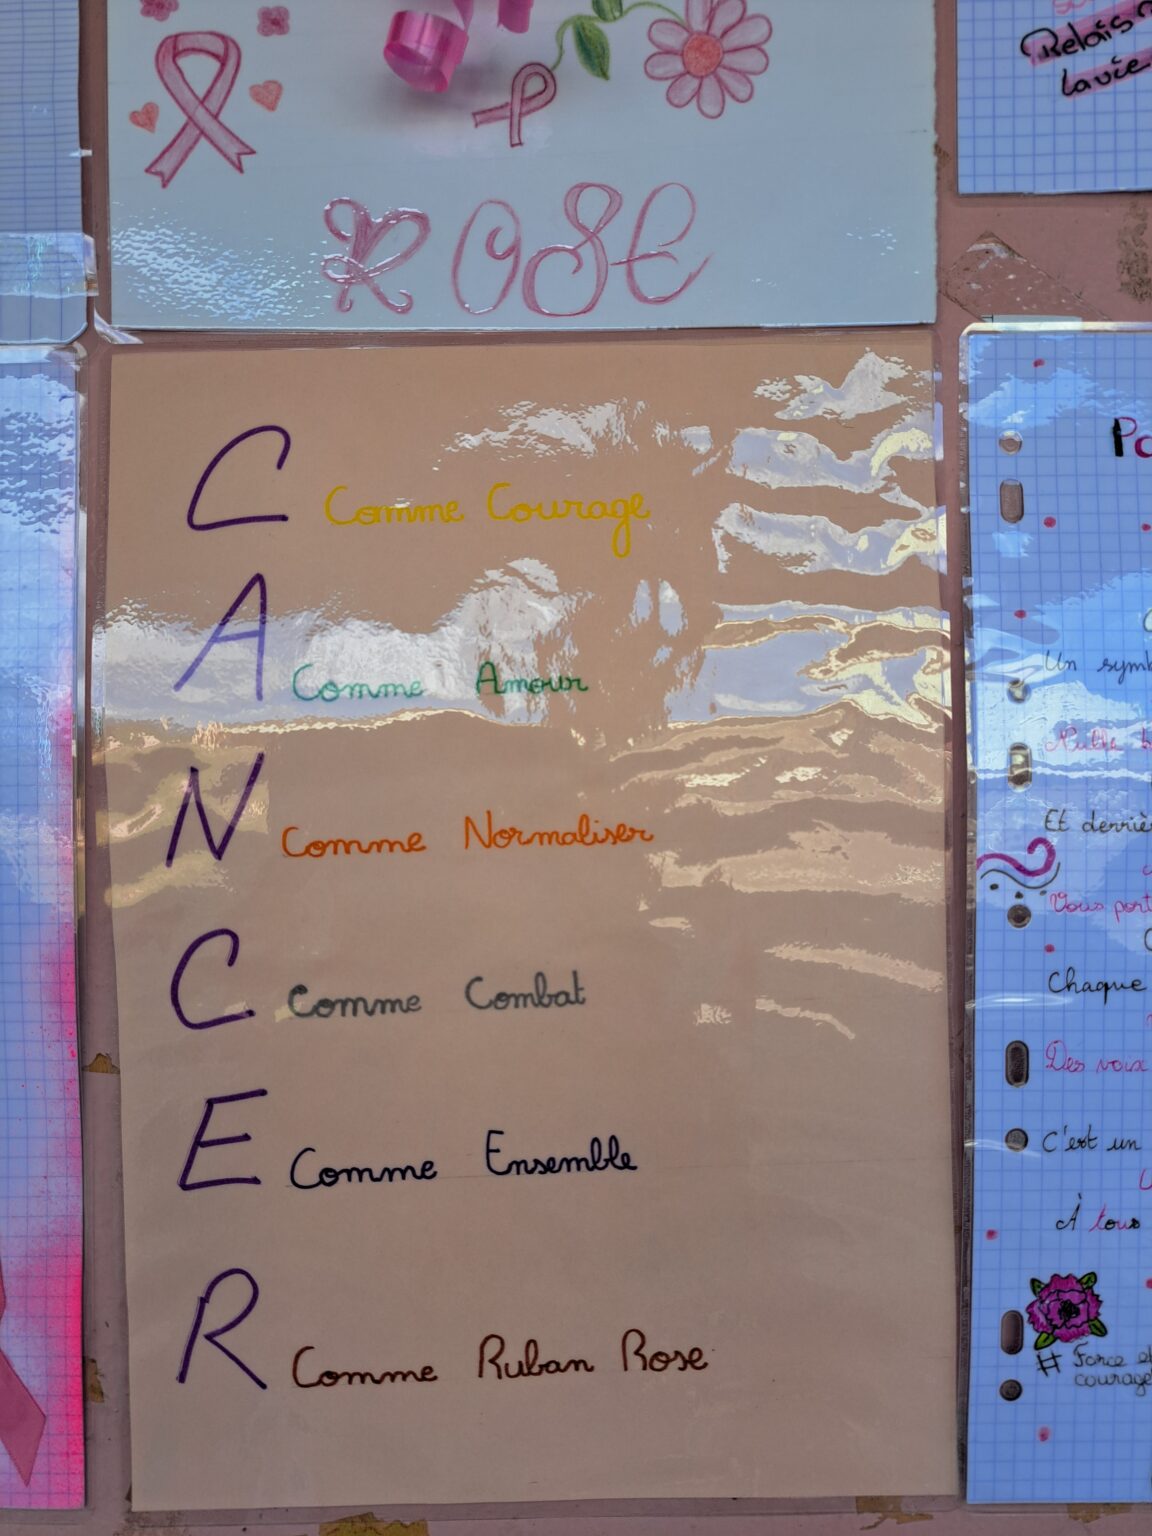 Relais
la vie
ROSE
C Comme Courage
A Comme Amour
N Comme Normaliser
C Comme Combat
E Comme Ensemble
R Comme Ruban Rose
Un
Et
Vous
Chaque
Des voix
C'est un
À tous
# Force
courage